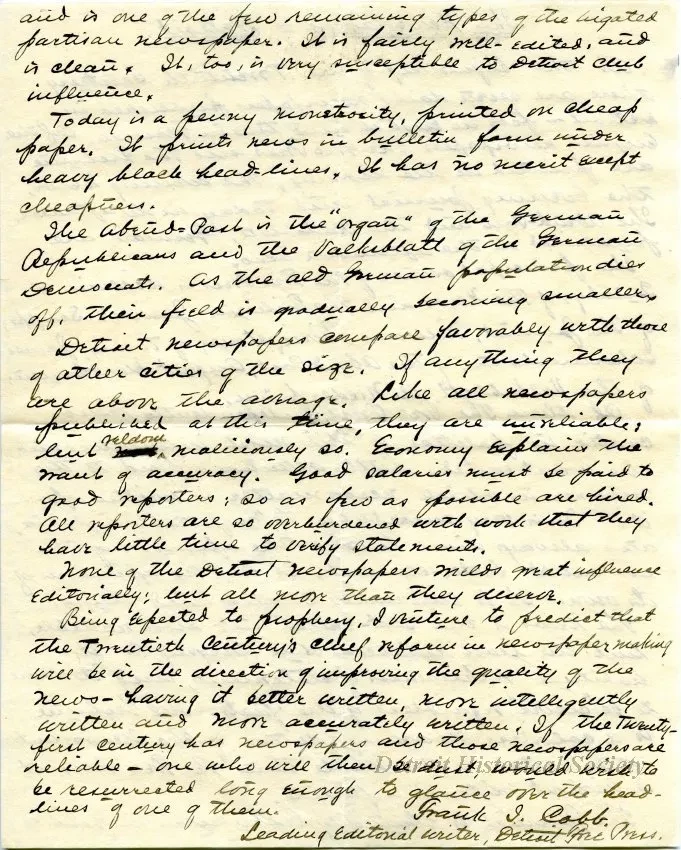 and is one of the few remaining types of the bigoted
partisan newspaper. It is fairly well-edited, and
is clean. It, too, is very susceptible to Detroit Club
influence.
Today is a penny monstrosity, printed on cheap
paper. It prints news in bulletin form under
heavy black head-lines. It has no merit except
cheapness.
The Abend-Post is the "organ" of the German
Republicans and the Volksblatt of the German
Democrats. As the old German population dies
off, their field is gradually becoming smaller.
Detroit newspapers compare favorably with those
of other cities of the size. If anything they
are above the average. Like all newspapers
published at this time, they are unreliable;
but seldom maliciously so. Economy explains the
want of accuracy. Good salaries must be paid to
good reporters; so as few as possible are hired.
All reporters are so overburdened with work that they
have little time to verify statements.
None of the Detroit newspapers wields great influence
Editorially; but all more than they deserve.
Being Expected to prophecy, I venture to predict that
the Twentieth Century's chief reform in newspaper making
will be in the direction of improving the quality of the
news - having it better written, more intelligently
written and more accurately written. If the Twenty-
first Century has newspapers and those newspapers are
reliable - one who will then be dust would wish to
be resurrected long enough to glance over the head-
lines of one of them.
Frank I. Cobb.
Leading Editorial writer, Detroit Free Press.
Detroit Historical Society